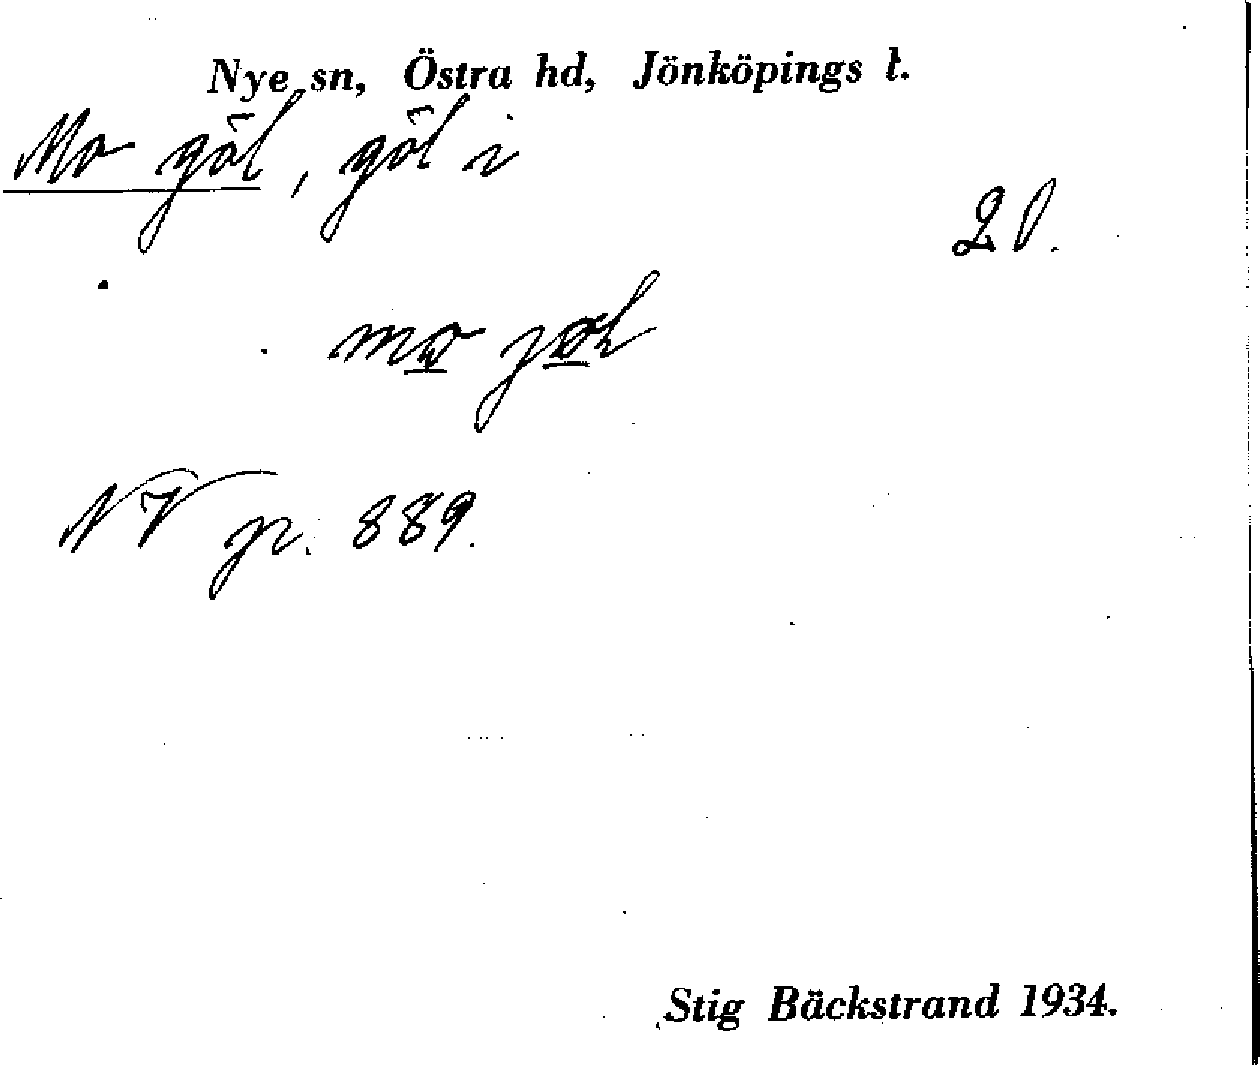 Nye sn, Östra hd, Jönköpings l.
Mo göl, göl i
20.
mo jöl
NV p. 889.
Stig Bäckstrand 1934.